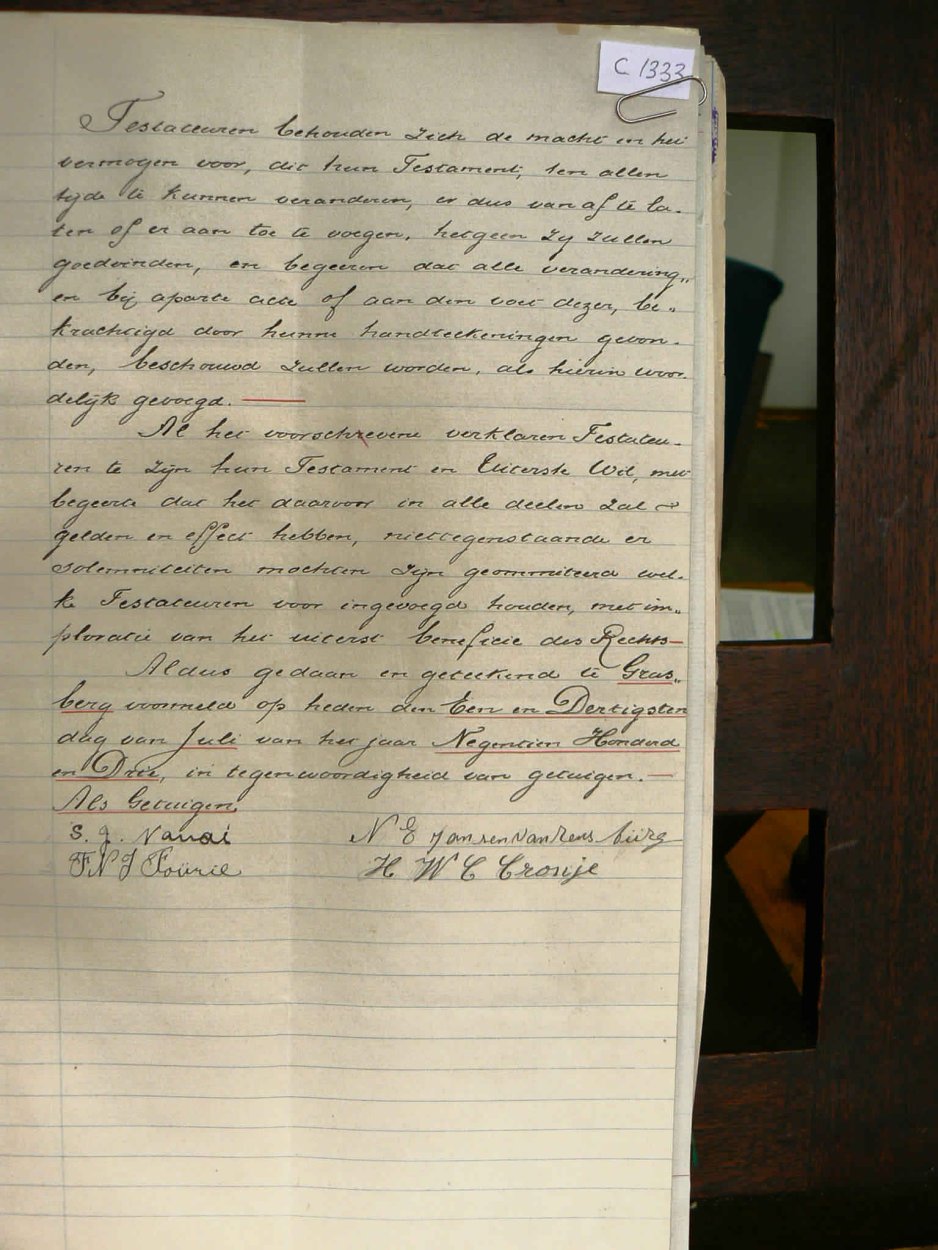 C 1333
Testateuren behouden zich de macht en het
vermogen voor, dit hun Testament, ten allen
tyde te kunnen veranderen, er dus van af te la-
ten of er aan toe te voegen, hetgeen zy zullen
goedvinden, en begeeren dat alle verandering„
en bij aparte acte of aan den voet dezer, be„
krachtigd door hunne handteekeningen gevon-
den, beschouwd zullen worden, als hierin woor-
delijk gevoegd.
Al het voorschrevene verklaren Testateu-
ren te zijn hun Testament en Uiterste Wil, met
begeerte dat het daarvoor in alle deelen zal
gelden en effect hebben, niettegenstaande er
solemniteiten mochten zijn geommiteerd wel-
ke Testateuren voor ingevoegd houden, met im„
ploratie van het uiterst beneficie des Rechts
Aldus gedaan en geteekend te Gras„
berg voormeld op heden den Een en Dertigsten
dag van Juli van het jaar Negentien Honderd
en Drie, in tegenwoordigheid van getuigen.
Als Getuigen,
S. J. N E Jansen van Rensbürg
F N J Fourie H W C Cronje